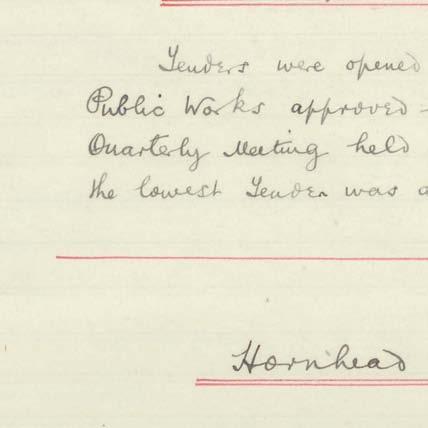 Tenders were opened
Public Works approved -
Quarterly Meeting held
the lowest Tender was a
Hornhead